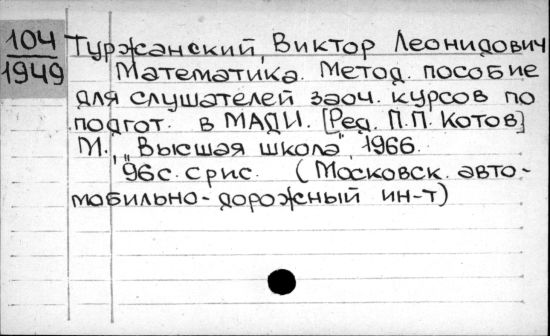 104
1949
Туржанский, Виктор Леонидович
Математика. Метод. пособие
для слушателей заоч. курсов по
подгот. в МАДИ. [Ред. П.П. Котов]
М., "Высшая школа", 1966.
96с. с рис. (Московск. авто-
мобильно-дорожный ин-т)